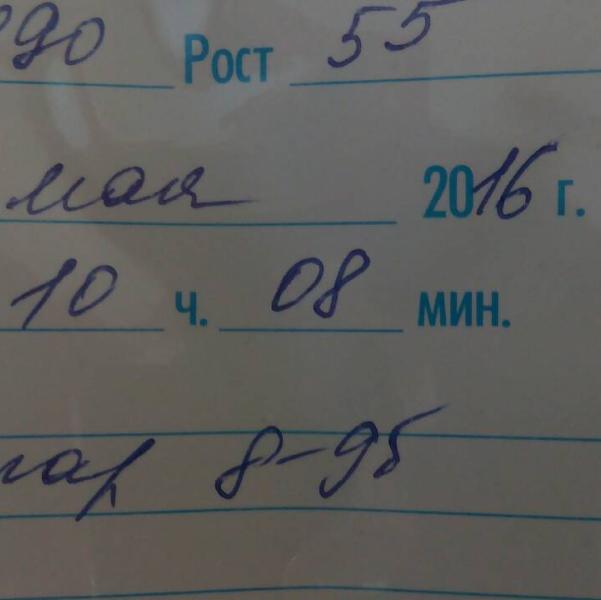 890 Рост 55
мая 2016 г.
10 ч. 08 мин.
8-95